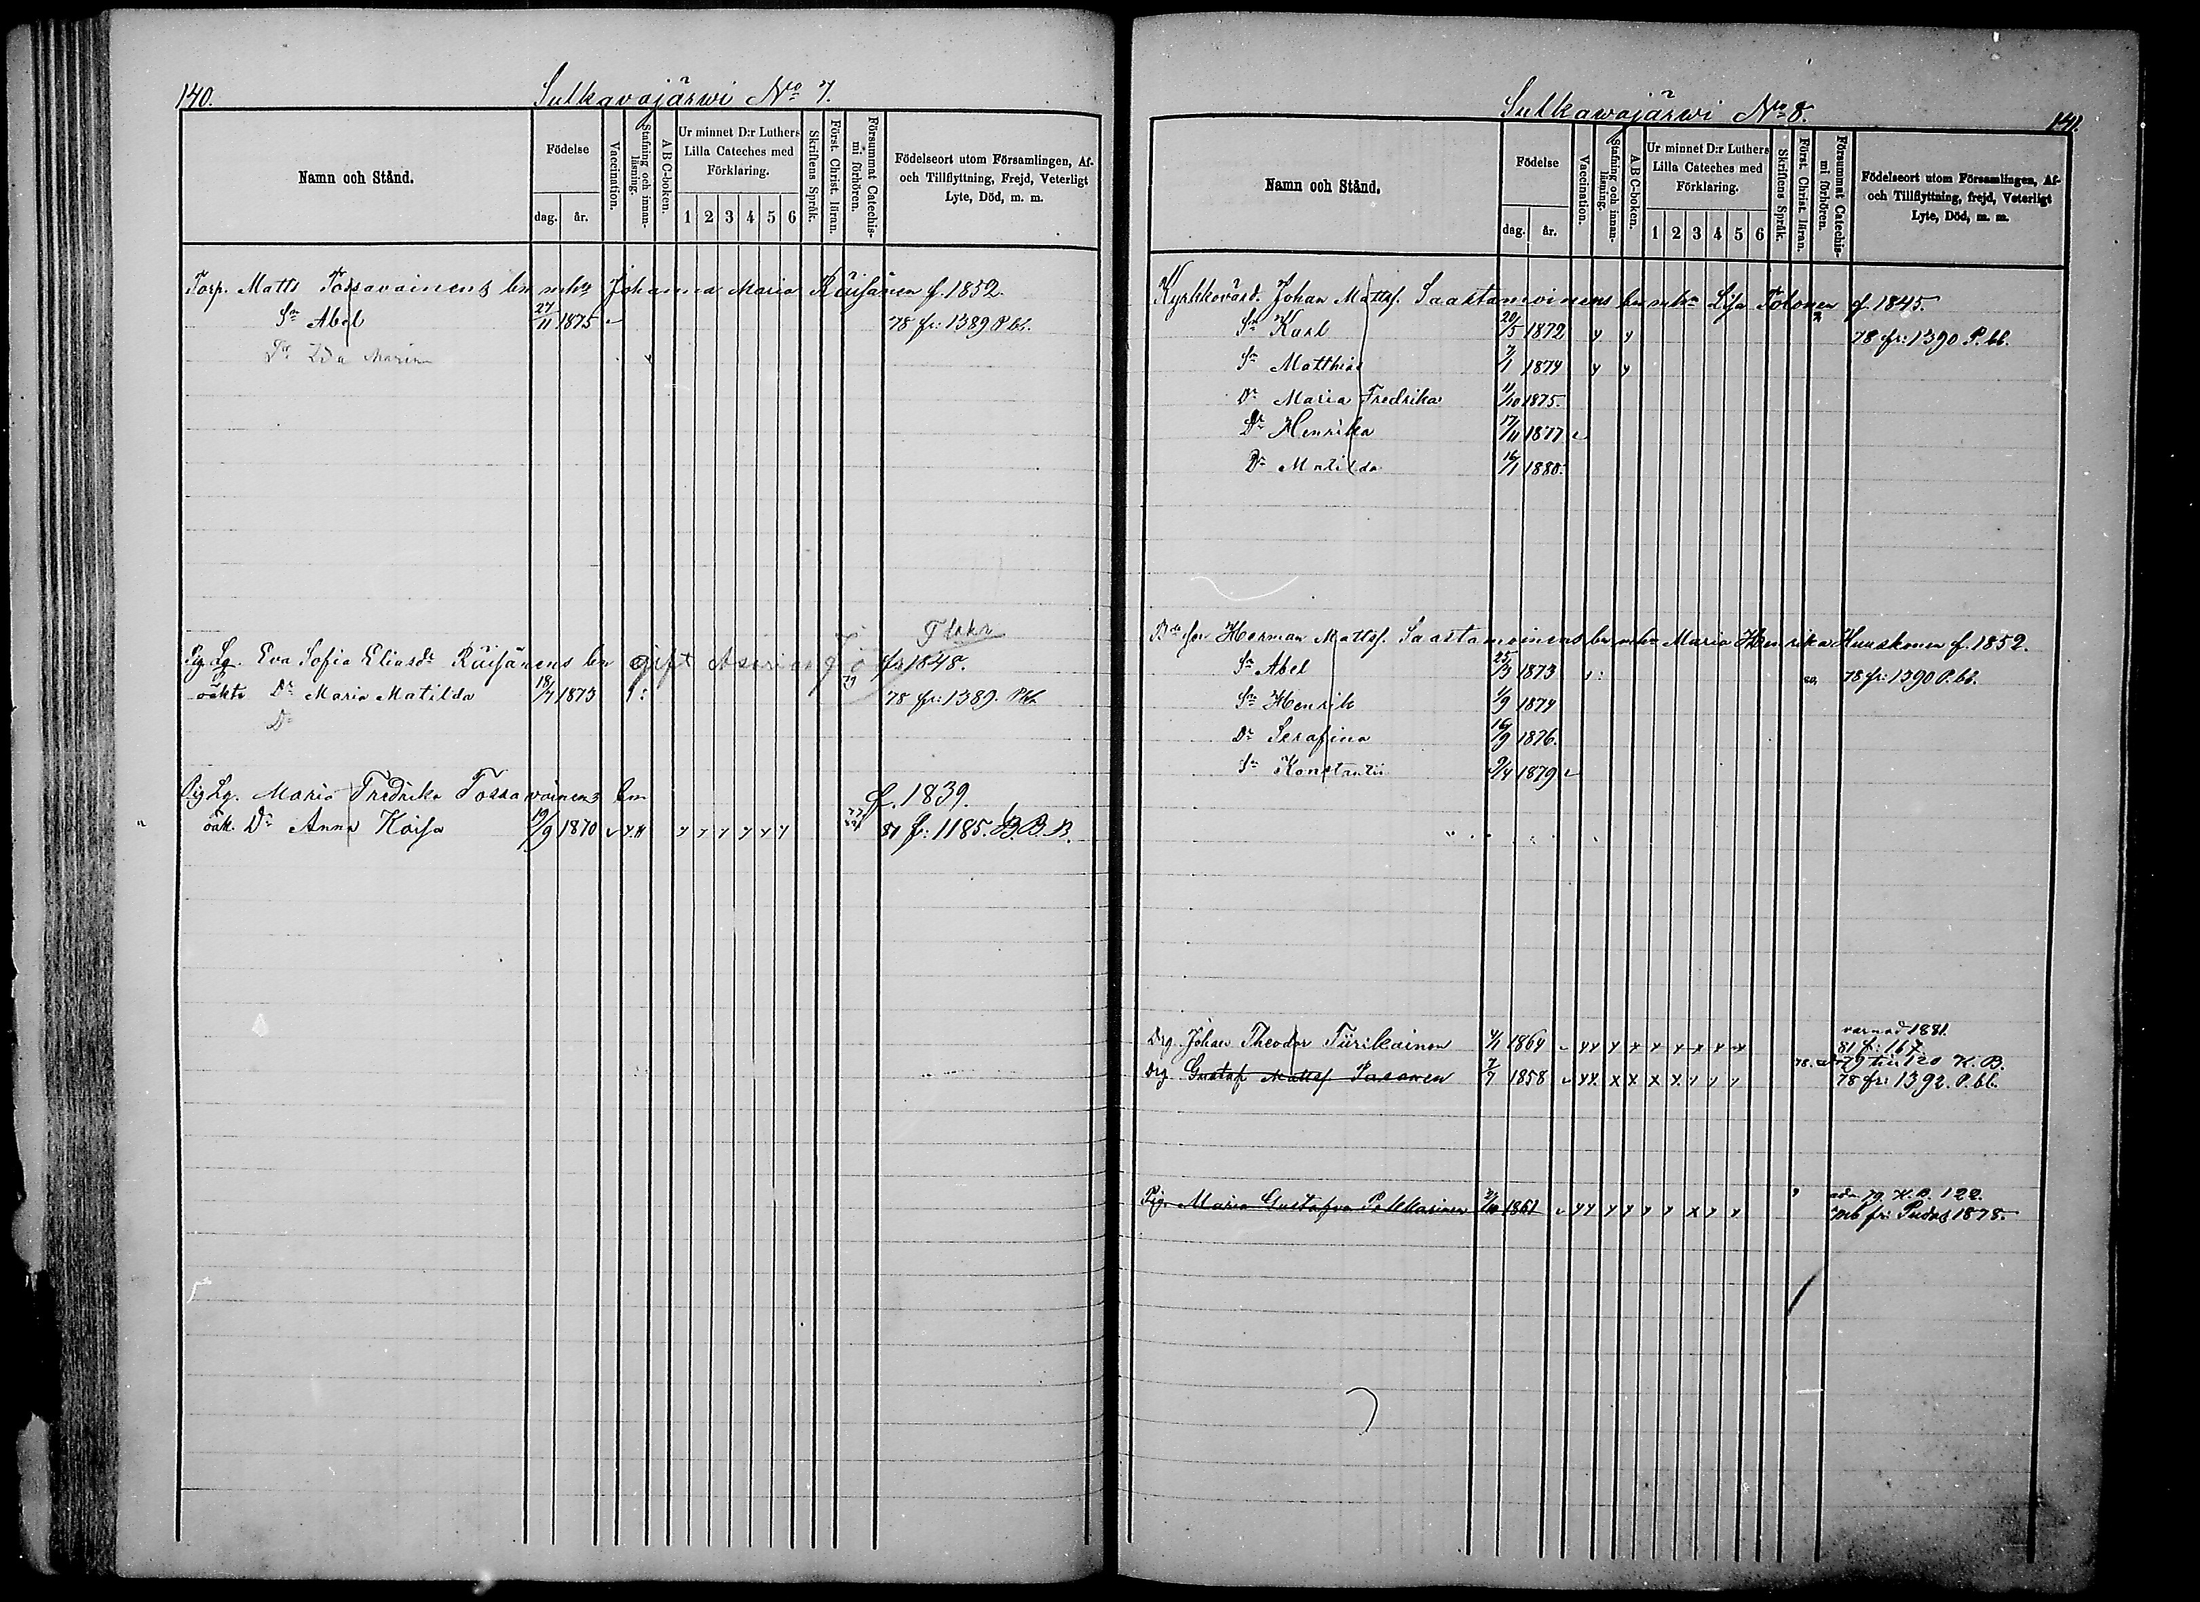 140.
Sulkavajärwi No 7.
Namn och Stånd.
Födelse
dag.
år.
Vaccination.
Stafning och innanläsning.
A B C-boken.
Ur minnet D:r Luthers Lilla Cateches med Förklaring.
1 2 3 4 5 6
Skriftens Språk.
Först. Christ. läran.
Försummat Catechismi förhören.
Födelseort utom Församlingen, Af- och Tillflyttning, Frejd, Veterligt Lyte, Död, m. m.
Torp. Matts Tossavainens bn mhu Johanna Maria Räisänen f. 1852.
Sn Abel 27/11 1875 78 fr: 1389 P. bl.
Dr Ida Maria
Pig Lg. Eva Sofia Eliasdr Räisänens bn gift f. 1848.
oäkta Dr Maria Matilda 18/7 1873 78 fr: 1389.
Dr
Pig Lg. Maria Fredrika Tossavainens bn f. 1839.
oäk. Dr Anna Kaisa 19/9 1870 81 fr: 1185. B. B.
Sulkawajärwi No 8.
141.
Namn och Stånd.
Födelse
dag.
år.
Vaccination.
Stafning och innanläsning.
A B C-boken.
Ur minnet D:r Luthers Lilla Cateches med Förklaring.
1 2 3 4 5 6
Skriftens Språk.
Först. Christ. läran.
Försummat Catechismi förhören.
Födelseort utom Församlingen, Af- och Tillflyttning, frejd, Veterligt Lyte, Död, m. m.
Kyrkkovärd. Johan Mattsf. Saastamoinens bn mhu Lisa Tolonen f. 1845.
Sn Karl 20/5 1872 y y 78 fr: 1390 P. bl.
Sn Matthias 7/1 1874 y y
Dr Maria Fredrika 1/10 1875.
Dr Henrika 17/11 1877
Dr Matilda 16/1 1880.
Herman Mattsf. Saastamoinens bn mhu Maria Henrika Huuskonen f. 1852.
Sn Abel 25/3 1873 80. 78 fr: 1390 P. bl.
Sn Henrik 1/9 1874
Dr Serafina 16/9 1876.
Sn Konstantin 9/4 1879
varnad 1881.
Drg. Johan Theodor Tiirikainen 4/1 1864 81 f: 167.
79 till 120 K. B.
Drg Gustaf Mattsf Pasanen 7/7 1858 78. 78 fr: 1392. P. bl.
79. K. B. 122.
Pig. Maria Gustafva Pekkarinen 1861 mb fr: Pudas 1878.